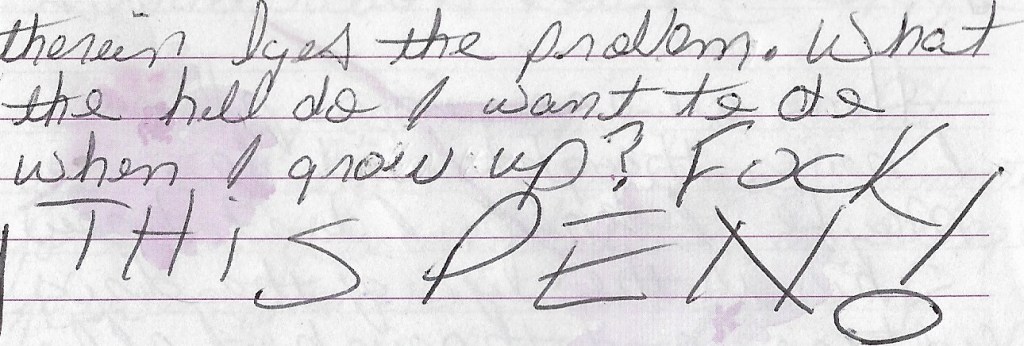 therein lyes the problem. What
the hell do I want to do
when I grow up? FOCK
THiS PEN!